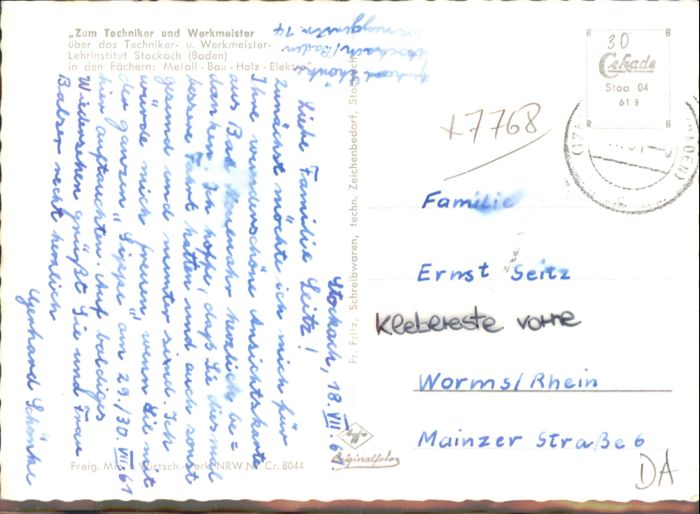 „Zum Techniker und Werkmeister
über das Techniker- u. Werkmeister-
Lehrinstitut Stockach (Baden)
in den Fächern: Metall - Bau - Holz - Elektro“
Stockach/Baden
Stockach, 18. VII. 61
Liebe Familie Seitz!
Zunächst möchte ich mich für
Ihre wunderschöne Ansichtskarte
aus Bad Neuenahr herzlich be=
danken. Ich hoffe, daß Sie diesmal
bessere Fahrt hatten und auch sonst
gesund und munter sind. Ich
würde mich freuen, wenn Sie mit
der ganzen „Sippe" am 29./30. VII 61
hier auftauchten. Auf baldiges
Wiedersehen grüßt Sie und Frau
Balser recht herzlich
Gerhard Schönke
Freig. Min. f. Wirtsch. Verk. NRW Nr. Cr. 8044
Fr. Fritz, Schreibwaren, techn. Zeichenbedarf, Stockach
Agfa
Originalfoto
30
B B
Cekade
Stoa 04
61 3
R B
+7768
Familie
Ernst Seitz
Klebereste vorne
Worms/Rhein
Mainzer Straße 6
DA